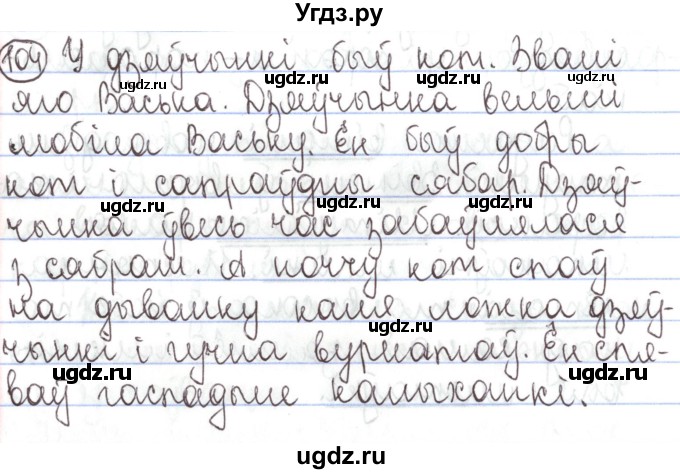 Угдз.ру
104 У дзяўчынкі быў кот. Звалі
яго Васька. Дзяўчынка вельмі
любіла Ваську. Ён быў добры
кот і сапраўдны сябар. Дзяў-
чынка ўвесь час забаўлялася
з сабрам. А ноччу кот спаў
на дываныку каля ложка дзяў-
чынкі і гучна вуркатаў. Ён спя-
ваў гаспадыне калыханкі.
ugdz.ru
ugdz.ru
ugdz.ru
ugdz.ru
ugdz.ru
ugdz.ru
ugdz.ru
ugdz.ru
ugdz.ru
ugdz.ru
ugdz.ru
ugdz.ru
ugdz.ru